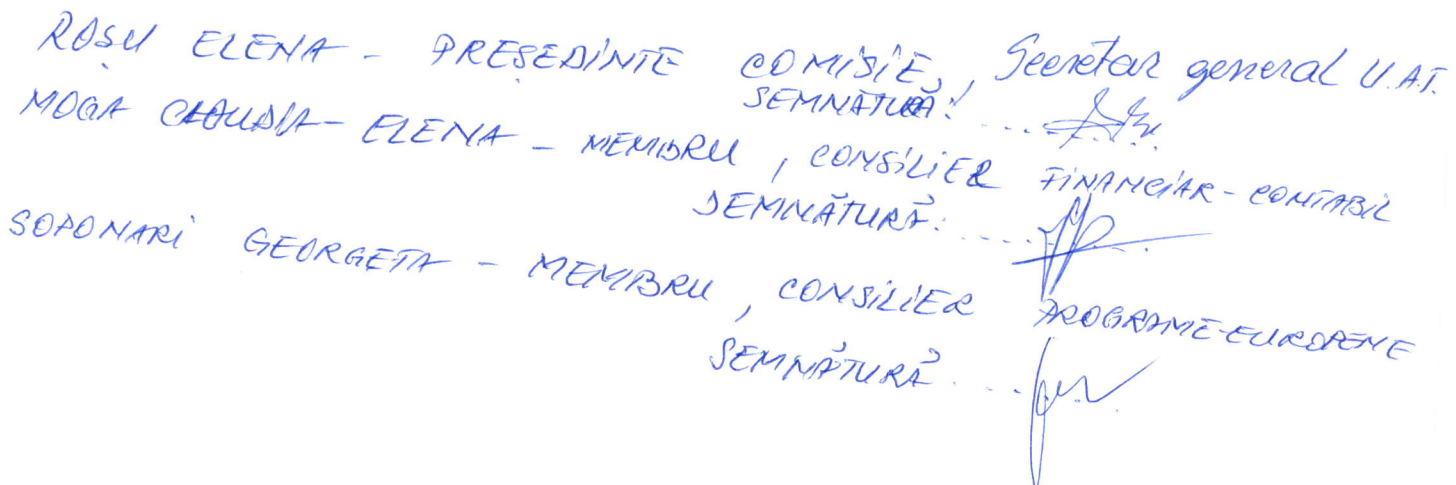 ROȘU ELENA - PREȘEDINTE COMISIE, Secretar general U.A.T.
SEMNĂTURĂ: ....
MOGA CLAUDIA - ELENA - MEMBRU, CONSILIER FINANCIAR - CONTABIL
SEMNĂTURĂ: ....
SOPONARI GEORGETA - MEMBRU, CONSILIER PROGRAME-EUROPENE
SEMNĂTURĂ ....